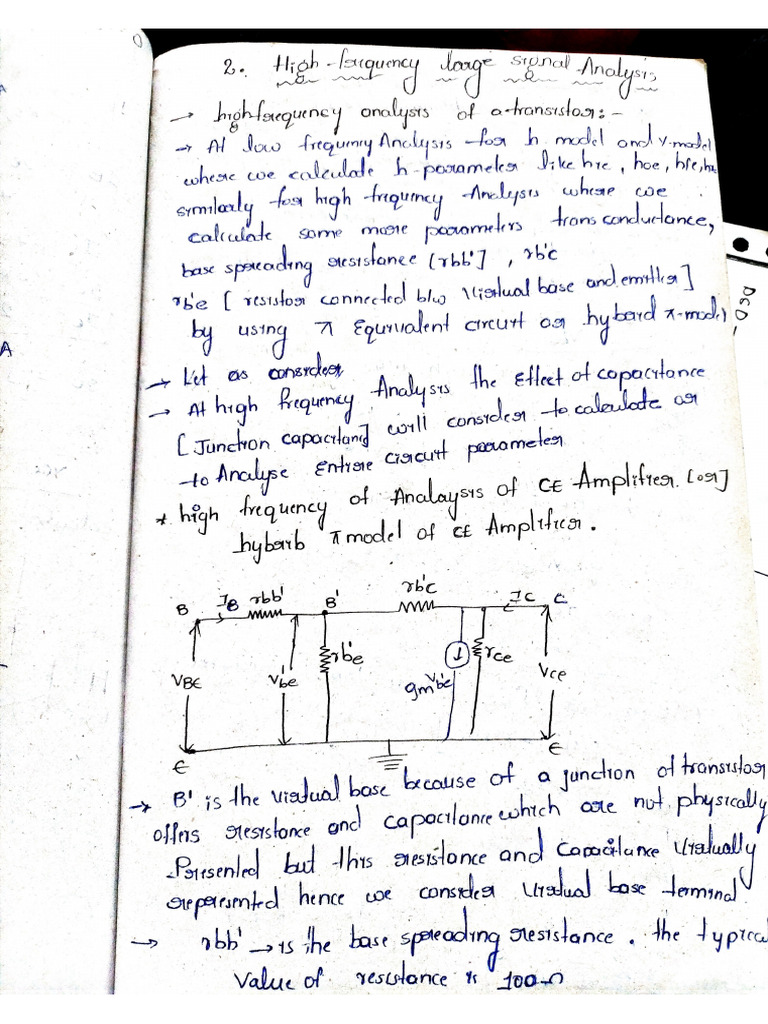 2. High-frequency large signal Analysis
→ high frequency analysis of a-transistor:-
→ At low frequency Analysis for h model and Y-model
where we calculate h-parameter like hre, hoe, hfe, hie
similarly for high frequency Analysis where we
calculate some more parameters trans conductance,
base spreading resistance [rbb'], rb'c
rb'e [resistor connected b/w virtual base and emitter]
by using π Equivalent circuit or hybard π-model
→ Let as consider
→ At high frequency Analysis the Effect of capacitance
[Junction capacitance] will consider to calculate or
to Analyse Entire circuit parameter
* high frequency of Analaysis of CE Amplifier [or]
hybarb π model of CE Amplifier.
B IB rbb' B' rb'c IC C
VBE Vb'e rb'e gmVb'e rce Vce
E E
→ B' is the virtual base because of a junction of transistor
offers resistance and capacitance which are not physically
Presented but this resistance and capacitance virtually
represented hence we consider virtual base terminal
→ rbb' → is the base spreading resistance. the typical
Value of resistance is 100Ω
DSD-
A